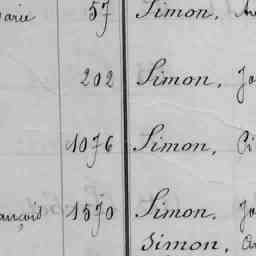 arie 57 Simon, An
202 Simon, Jo
1076 Simon, Ci
ançois 1570 Simon, Jo
Simon,